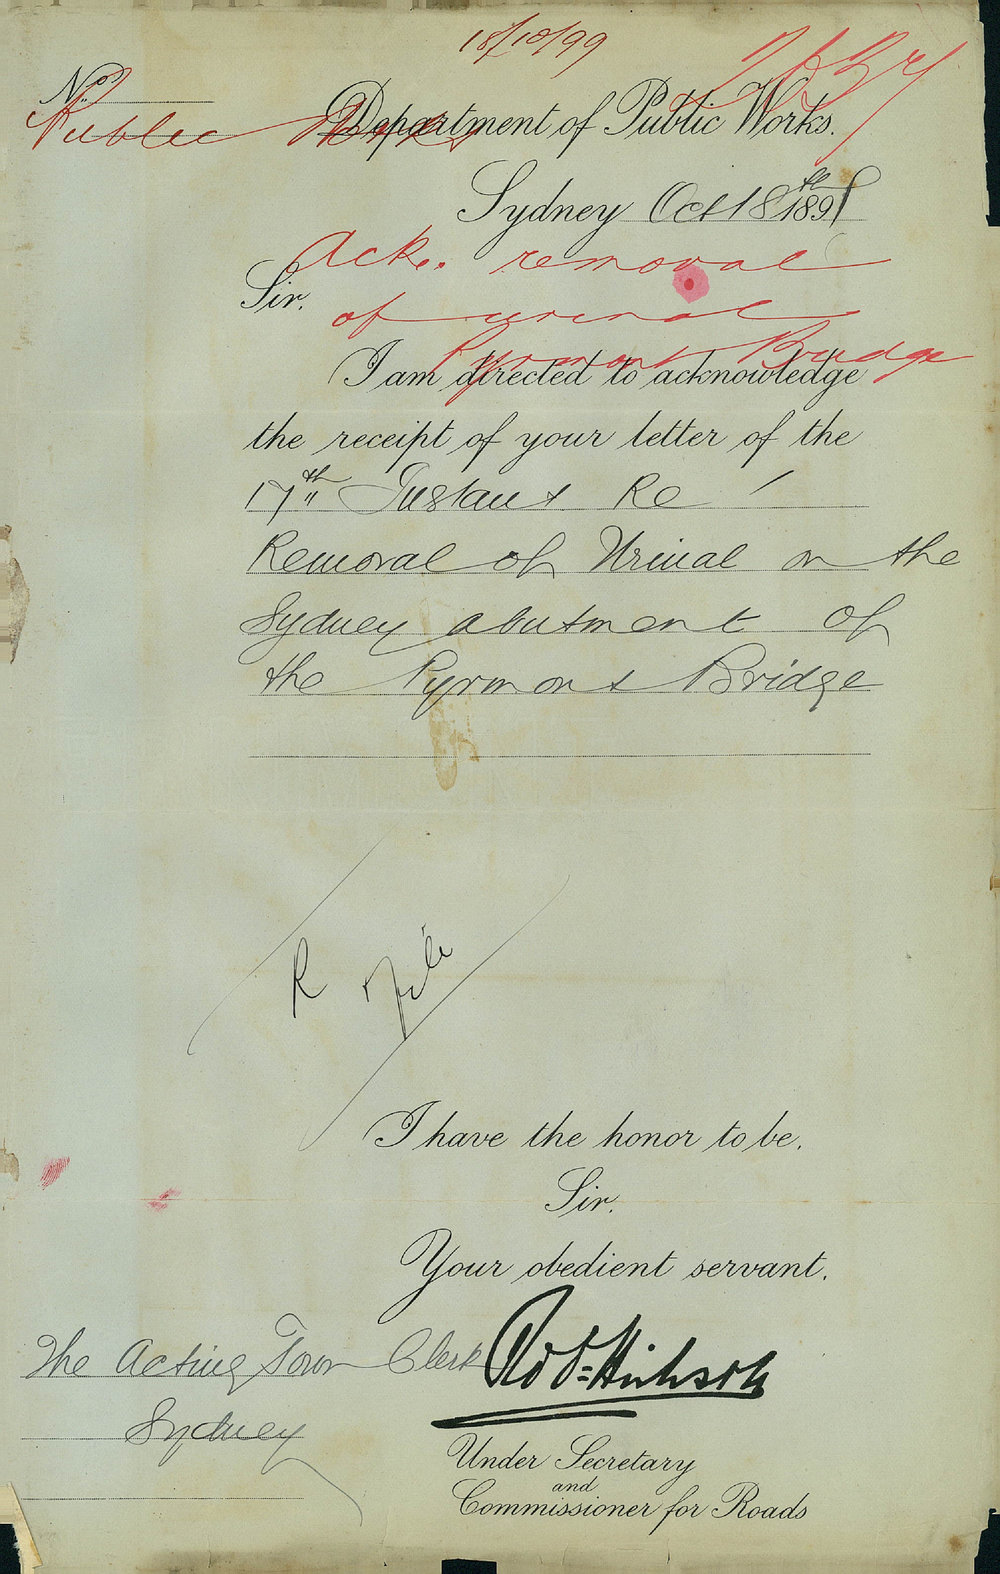 18/10/99
No.
Public Works
Department of Public Works.
Sydney Oct 18th 189
Ack. removal
Sir.
of urinal
Pyrmont Bridge
I am directed to acknowledge
the receipt of your letter of the
17th Instant Re
Removal of Urinal on the
Sydney abutment of
the Pyrmont Bridge
R File
I have the honor to be,
Sir,
Your obedient servant,
The Acting Town Clerk
Sydney
Under Secretary
and
Commissioner for Roads